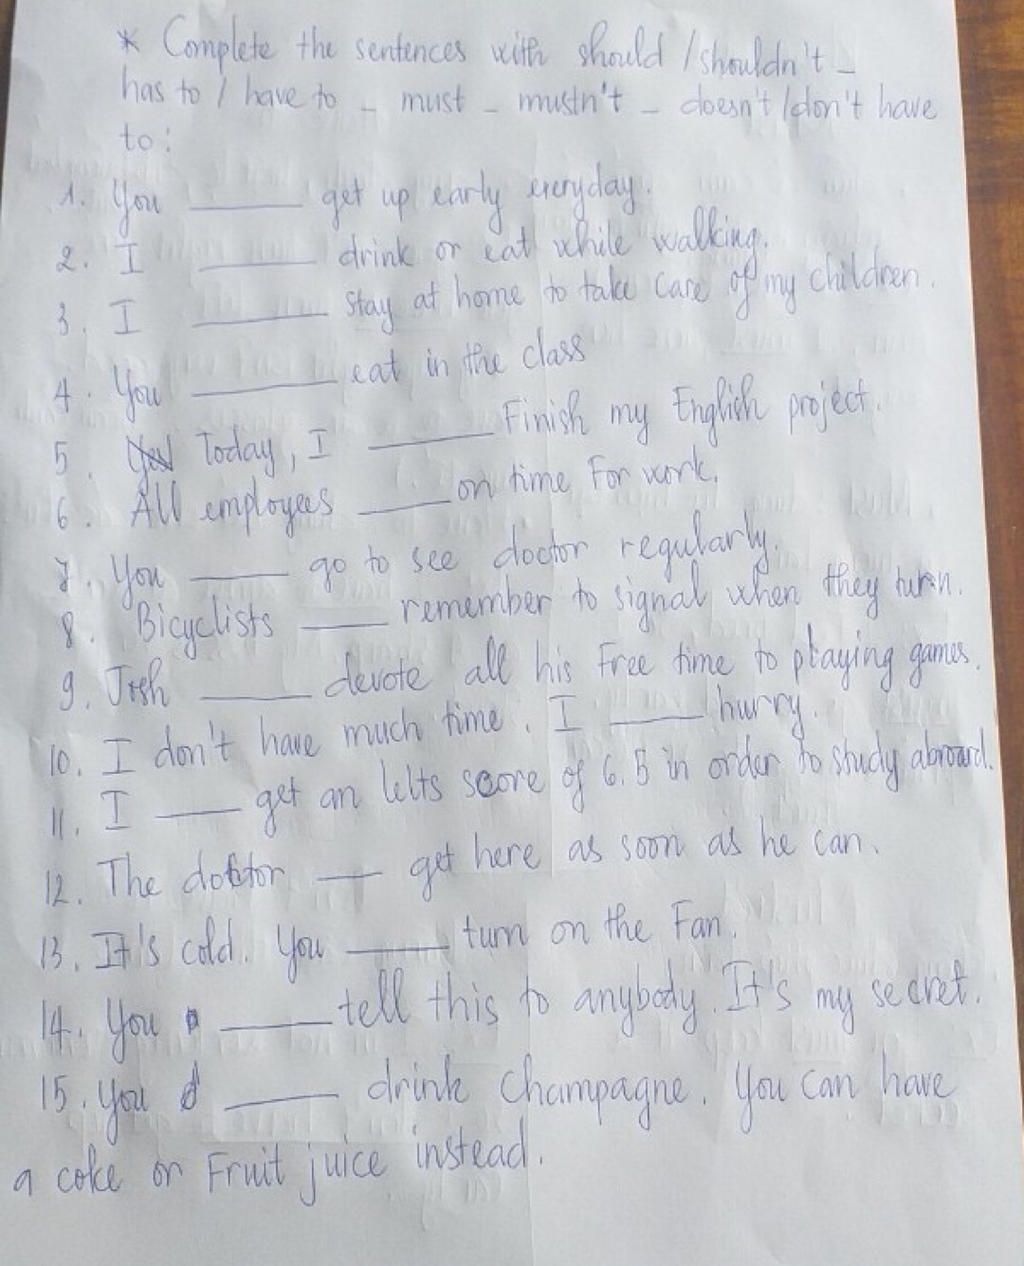 * Complete the sentences with should / shouldn't -
has to / have to - must - mustn't - doesn't / don't have
to:
1. You ______ get up early everyday.
2. I ______ drink or eat while walking.
3. I ______ stay at home to take care of my children.
4. You ______ eat in the class
5. Today, I ______ Finish my English project.
6. All employees ______ on time For work.
7. You ______ go to see doctor regularly.
8. Bicyclists ______ remember to signal when they turn.
9. Josh ______ devote all his Free time to playing games.
10. I don't have much time. I ______ hurry.
11. I ______ get an Ielts score of 6.5 in order to study abroard.
12. The doctor ______ get here as soon as he can.
13. It's cold. You ______ turn on the Fan.
14. You ______ tell this to anybody. It's my secret.
15. You ______ drink champagne. You can have
a coke or Fruit juice instead.